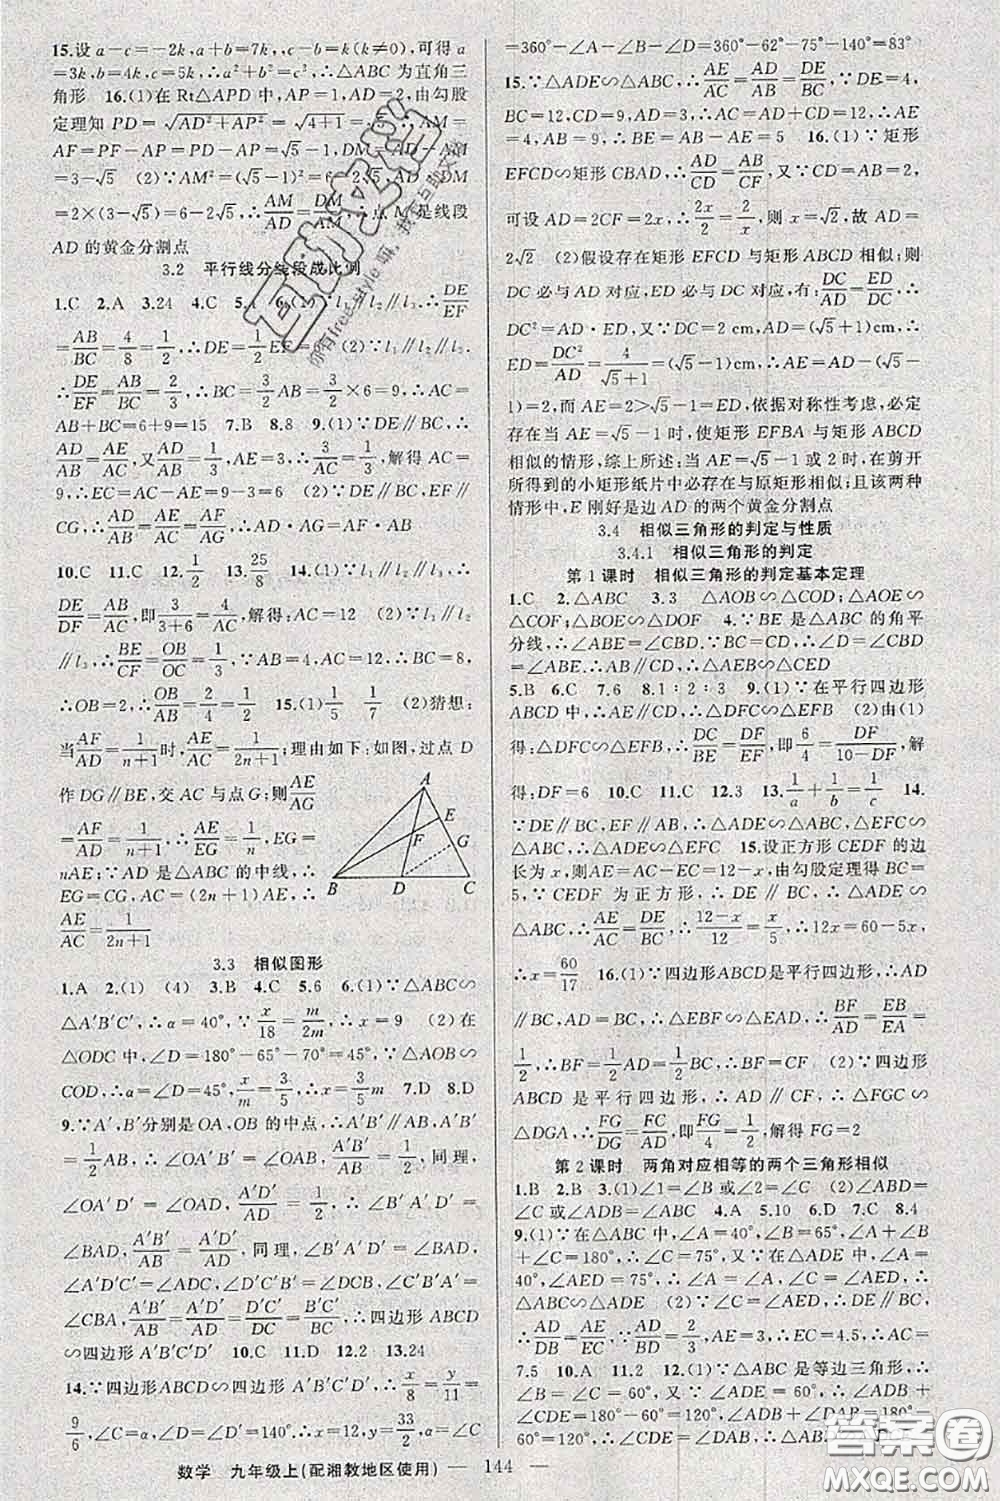 15.设 a-c=-2k,a+b=7k,,c-b=k(k≠0),可得 a
=3k,b=4k,c=5k,∴a²+b²=c²,∴△ABC 为直角三
角形 16.(1)在 Rt△APD 中,AP=1,AD=2,由勾股
定理知 PD=√(AD²+AP²)=√(4+1)=√5,∴AM=
AF=PF-AP=PD-AP=√5-1,DM=AD-AM
=3-√5 (2)∵AM²=(√5-1)²=6-2√5,AD·DM=
2×(3-√5)=6-2√5,∴AM/AD=DM/AM,∴点 M 是线段
AD 的黄金分割点
3.2 平行线分线段成比例
1.C 2.A 3.24 4.C 5.A 6.(1)∵l₁∥l₂∥l₃,∴DE/EF
=AB/BC=4/8=1/2,∴DE=1/2EF (2)∵l₁∥l₂∥l₃,
∴DE/EF=AB/BC=2/3,∴BC=3/2AB=3/2×6=9,∴AC=
AB+BC=6+9=15 7.B 8.8 9.(1)∵DE∥BC,∴
AD/AB=AE/AC,又AD/AB=1/3,AE=3,∴3/AC=1/3,解得 AC=
9,∴EC=AC-AE=9-3=6 (2)∵DE∥BC,EF∥
CG,∴AD/AB=AE/AC=AF/AG,∴AD·AG=AF·AB
10.C 11.C 12.1/2 13.25/8 14.(1)∵l₁∥l₂∥l₃,∴
DE/DF=AB/AC,即3/(3+6)=4/AC,解得:AC=12 (2)∵l₁∥l₂
∥l₃,∴BE/CF=OB/OC=1/3,∵AB=4,AC=12,∴BC=8,
∴OB=2,∴OB/AB=2/4=1/2 15.(1)1/5 1/7 (2)猜想:
当AF/AD=1/(n+1)时,AE/AC=1/(2n+1);理由如下:如图,过点 D
作 DG∥BE,交 AC 与点 G;则AE/AG
=AF/AD=1/(n+1),∴AE/EG=1/n,EG=
nAE;∵AD 是△ABC 的中线,∴
EG=CG,AC=(2n+1)AE,∴
AE/AC=1/(2n+1)
A
E
G
F
B D C
3.3 相似图形
1.A 2.(1) (4) 3.B 4.C 5.6 6.(1)∵△ABC∽
△A′B′C′,∴α=40°,∵x/18=m/2m,∴x=9 (2)在
△ODC 中,∠D=180°-65°-70°=45°,∵△AOB∽
COD,∴α=∠D=45°,x/m=3/5,∴x=3/5m 7.D 8.D
9.∵A′,B′分别是 OA,OB 的中点,∴A′B′∥AB,A′B′
=1/2AB,∴∠OA′B′=∠OAB,A′B′/AB=1/2,同理,
∠OA′D′=∠OAD,A′D′/AD=1/2,∴∠B′A′D′=
∠BAD,A′B′/AB=A′D′/AD,同理,∠B′A′D′=∠BAD,
∠A′D′C′=∠ADC,∠D′C′B′=∠DCB,∠C′B′A′=
∠CBA,A′B′/AB=A′D′/AD=D′C′/DC=B′C′/BC,∴四边形 ABCD
∽四边形 A′B′C′D′ 10.C 11.D 12.2 13.24
14.∵四边形ABCD∽四边形 A′B′C′D′,∴x/8=y/11=
9/6,∠C=α,∠D=∠D′=140°,∴x=12,y=33/2,α=∠C
=360°-∠A-∠B-∠D=360°-62°-75°-140°=83°
15.∵△ADE∽△ABC,∴AE/AC=AD/AB=DE/BC,∵DE=4,
BC=12,CD=9,AD=3,∴AC=AD+CD=12,∴
AB=9,∴BE=AB-AE=5 16.(1)∵矩形
EFCD∽矩形 CBAD,∴AD/CD=CD/CF,又∵CD=2,
可设 AD=2CF=2x,∴2x/2=2/x,则 x=√2,故 AD=
2√2 (2)假设存在矩形 EFCD 与矩形 ABCD 相似;则
DC 必与 AD 对应,ED 必与 DC 对应,有:DC/AD=ED/DC,∴
DC²=AD·ED,又∵DC=2 cm,AD=(√5+1)cm,∴
ED=DC²/AD=4/(√5+1)=(√5-1)cm,∴AE=AD-(√5-
1)=2,而 AE=2>√5-1=ED,依据对称性考虑,必定
存在当 AE=√5-1时,使矩形 EFBA 与矩形 ABCD
相似的情形,综上所述;当AE=√5-1 或 2 时,在剪开
所得到的小矩形纸片中必存在与原矩形相似;且该两种
情形中,E 刚好是边 AD 的两个黄金分割点
3.4 相似三角形的判定与性质
3.4.1 相似三角形的判定
第1课时 相似三角形的判定基本定理
1.C 2.△ABC 3.3 △AOB∽△COD;△AOE∽
△COF;△BOE∽△DOF 4.∵BE 是△ABC 的角平
分线,∴∠ABE=∠CBD.∵BC=CD,∴∠D=∠CBD
=∠ABE.∴AB∥CD.∴△ABE∽△CED
5.B 6.C 7.6 8.1∶2∶3 9.(1)∵在平行四边形
ABCD 中,∴AE∥CD,∴△DFC∽△EFB (2)由(1)
得:△DFC∽△EFB,∴DC/BE=DF/EF,即6/4=DF/(10-DF),解
得:DF=6 10.C 11.C 12.3 13.1/a+1/b=1/c 14.
∵DE∥BC,EF∥AB,∴△ADE∽△ABC,△EFC∽
△ABC,∴△ADE∽△EFC 15.设正方形 CEDF 的边
长为 x,则AE=AC-EC=12-x,由勾股定理得 BC=
5,∵CEDF 为正方形,∴DE∥BC,∴△ADE∽
△ABC,∴AE/AC=DE/BC,∴(12-x)/12=x/5,∴12x=60-5x,
∴x=60/17 16.(1)∵四边形ABCD是平行四边形,∴AD
∥BC,∵AE=2AB,∴△EBF∽△EAD,∴BF/AD=EB/EA=
1/2,∴BF=1/2AD=1/2BC,∴BF=CF (2)∵四边形
ABCD 是平行四边形,∴AD∥CF,∴△FGC∽
△DGA,∴FG/DG=FC/AD,即FG/4=1/2,解得 FG=2
第2课时 两角对应相等的两个三角形相似
1.B 2.B 3.(1)∠1=∠B 或∠2=∠C (2)∠ACD=
∠B 或∠ADC=∠ACB 4.A 5.10 6.D 7.C 8.4
9.(1)∵在△ABC 中,∠A=40°,∠B=65°,∠A+∠B
+∠C=180°,∴∠C=75°,又∵在△ADE 中,∠A=
40°,∠AED=75°,∴∠A=∠A,∠C=∠AED,∴
△ABC∽△ADE (2)∵∠C=∠AED,∴DE∥BC,∴
AD/DB=AE/EC,∵AD/BD=2/3,AE=3,∴EC=4.5,∴AC=
7.5 10.A 11.2 12.(1)∵△ABC 是等边三角形,∴
∠ABC=∠C=∠ADE=60°,∴∠ADB+
∠CDE=180°-60°=120°,∠DAB+∠ADB=180°-
∠ABD=120°,∴∠CDE=∠DAB,∴△ABD∽
数学 九年级上(配湘教地区使用) — 144 —
答案圈
MXQE.COM